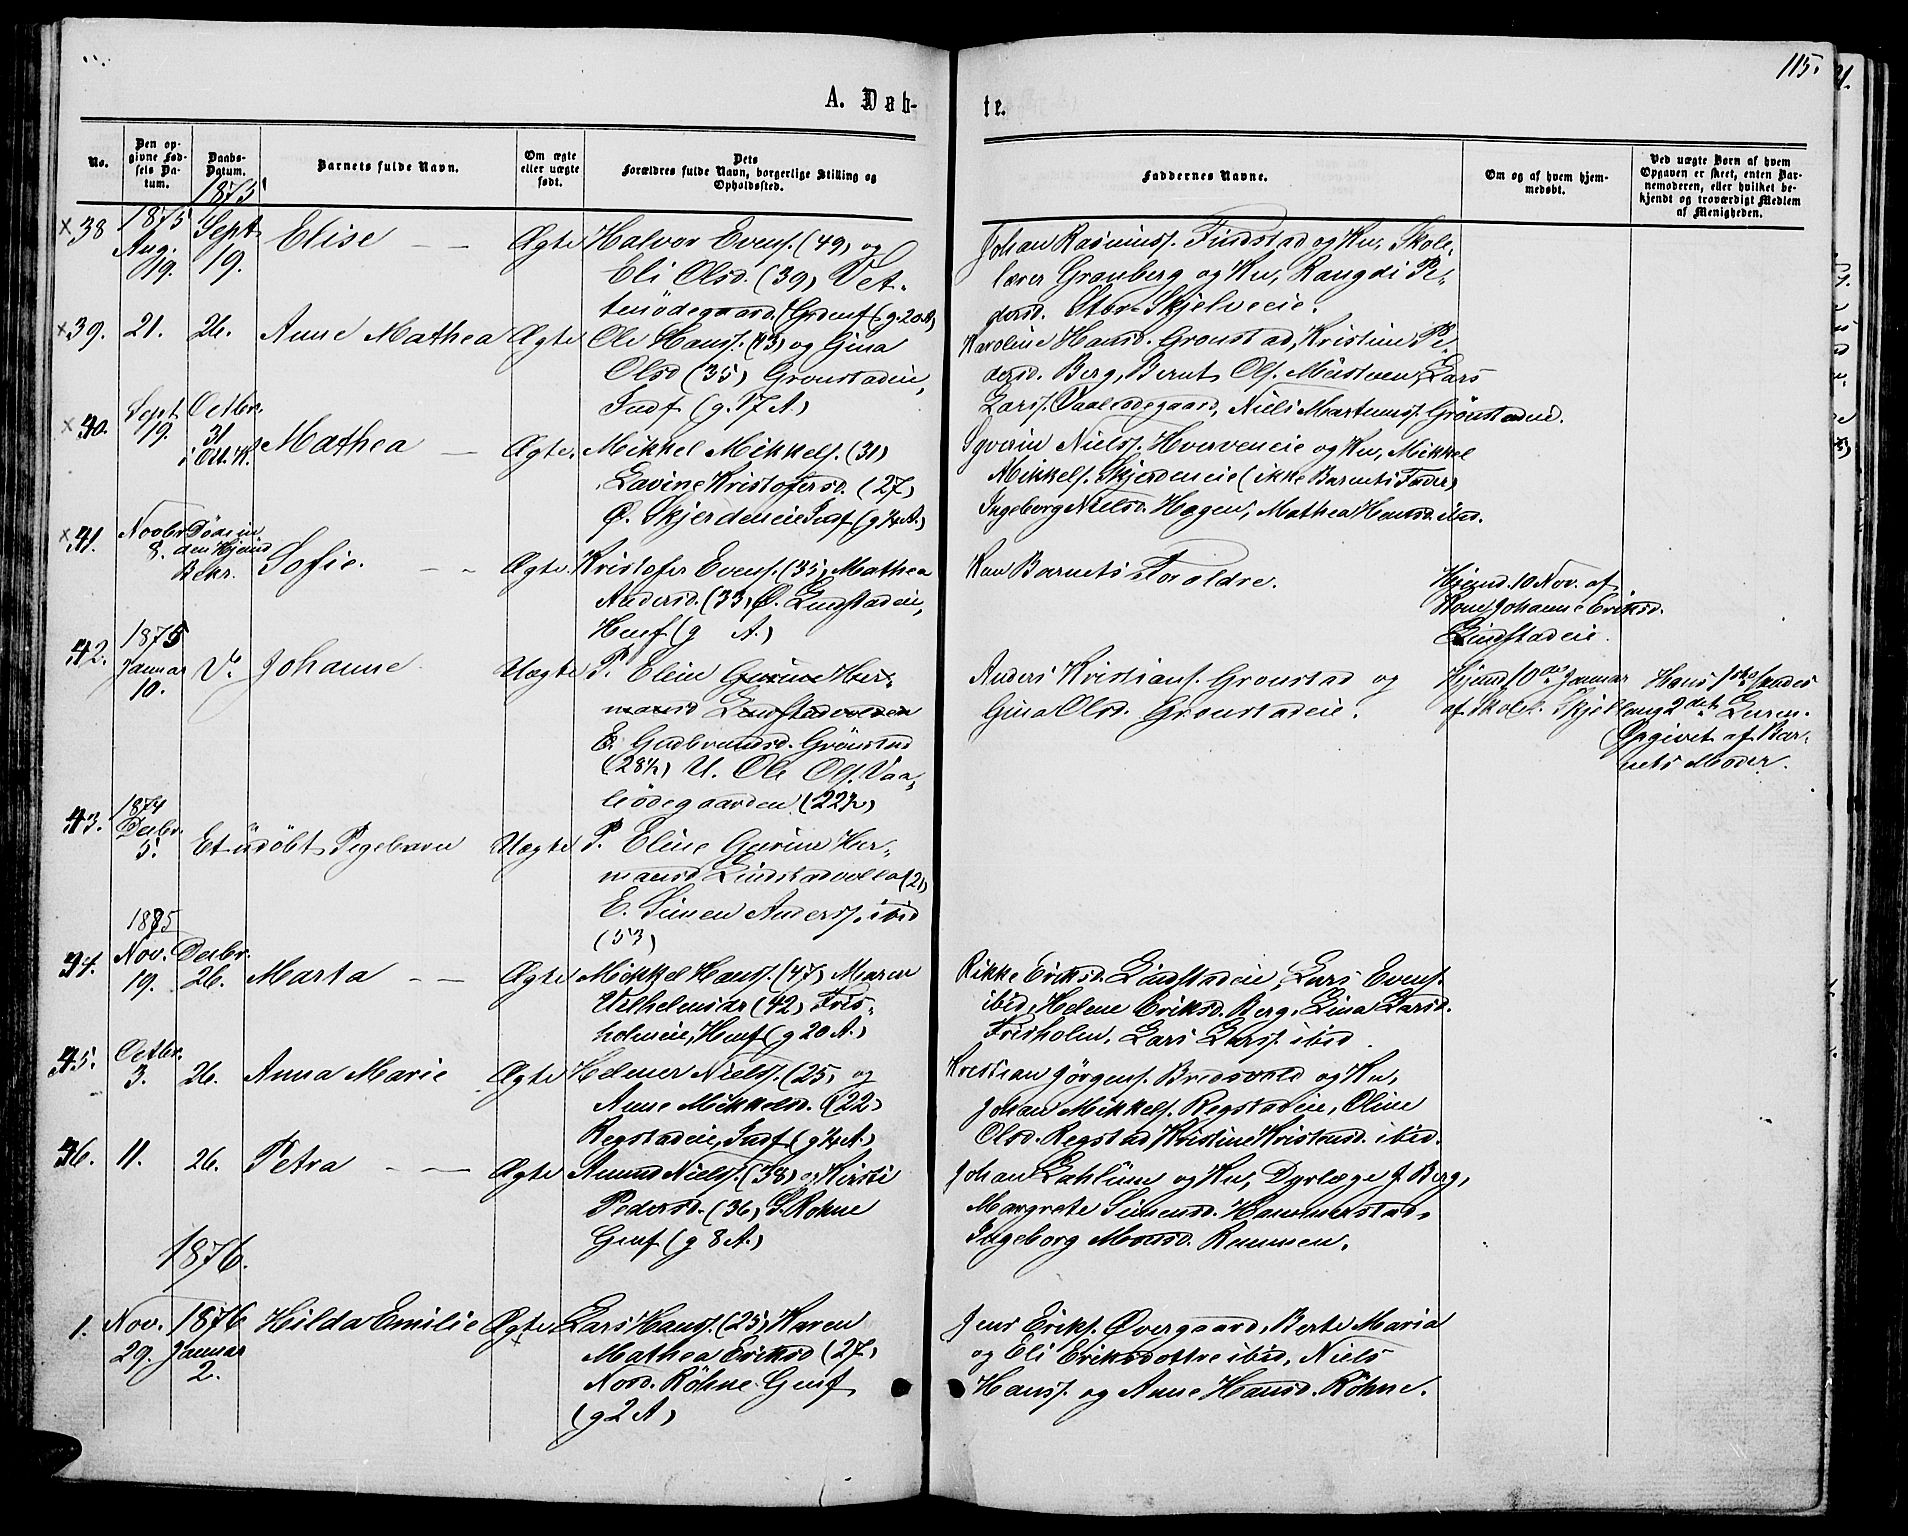 115.
A. Døb-
te.
No.
Den op-
givne Fød-
sels Da-
tum.
Daabs-
Datum.
Barnets fulde Navn.
Om ægte
eller uægte
født.
Dets
Forældres fulde Navn, borgerlige Stilling og
Opholdssted.
Faddernes Navne.
Om og af hvem hjem-
medøbt.
Ved uægte Børn af hvem
Opgaven er skeet, enten Bar-
nemoderen, eller hvilket be-
kjendt og troværdigt Medlem
af Menigheden.
1875
×38
1875
Aug.
19.
Sept.
19.
Elise
Ægte
Halvor Evens. (49) og
Eli Olsd. (39) Vet-
tenødegaard. Grdenf (g. 20 A)
Johan Rasmuss. Findstad og Ku, Skole-
lærer Granberg og Ku, Rangdi Pe-
dersd. Stor-Skjelveeie.
×39.
21.
26.
Anne Mathea
Ægte
Ole Hanss. (43) og Gina
Olsd (35) Gronstadeie,
Indf (g. 17 A)
Karoline Hansd. Gronstad, Kristine Pe-
dersd. Berg, Bernt Ols. Mustuen, Lars
Larss. Vaalsødegaard, Niels Martinuss. Grönstadeie.
×40.
Sept
19.
Octbr.
31
i Øst. K.
Mathea
Ægte.
Mikkel Mikkels. (31)
Lavine Kristofersd. (27)
Ø. Skjerdeneie Indf (g 4 A)
Syverin Nielss. Hverveneie og Ku, Mikkel
Mikkels. Skjerdeneie (ikke Barnets Fader)
Ingeborg Nielsd. Hagen, Mathea Hansd. ibid.
×41.
Novbr
8.
Døde in-
den Hjemd
Bekr.
Sofie.
Ægte.
Kristofer Evens. (35) Mathea
Andersd. (33) Ø. Lindstadeie,
Husf (g A)
Kun Barnets Foroldre.
Hjemd. 10 Nov. af
Kone Johanne Eriksd.
Lindstadeie.
42.
1875
Januar
10.
Do
Johanne
Uægte
P. Eline Gurine Her-
mansd Lindstadvolden
E. Gudbrandsd. Grönstad
(28½) U. Ole Ols. Vaa-
lsødegaarden (22½)
Anders Kristians. Gronstad og
Gina Olsd. Gronstadeie.
Hjemd 10de Januar
af Skolel. Skjellang
Hans 1ste hendes
2det Leierm.
Opgivet af Bar-
nets Moder.
43.
1874
Decbr.
5.
Et udöbt Pigebarn
Uægte
P. Eline Gurine Her-
mansd Lindstadvolla (21)
E. Simen Anderss. ibid
(53)
44.
1875
Nov.
19.
Decbr.
26.
Marta
Ægte
Mikkel Hanss. (47) Maren
Vilhelmsdr (42) Fris-
holmeie, Husf (g 20 A.)
Rikke Eriksd. Lindstadeie, Lars Evens.
ibid, Helene Eriksd. Berg, Lina Larsd.
Frisholm, Lars Larss. ibid.
45.
Octbr.
3.
26.
Anna Marie
Ægte
Helmer Nielss. (25) og
Anne Mikkelsd. (22)
Regstadeie, Indf (g 4 A)
Kristian Jörgens. Bredsvold og Ku,
Johan Mikkels. Regstadeie, Oline
Olsd. Regstad Kristine Kristensd. ibid.
46.
11.
26.
Petra
Ægte
Amund Nielss. (38) og Kirsti
Pedersd. (36) S. Rohne
Genf (g 8 A.)
Johan Lahlum og Ku, Dyrlæge J. Berg,
Margrete Simensd. Hammerstad,
Ingeborg Monsd. Rammen.
1876.
1.
Nov.
29.
1876
Januar
2.
Hilda Emilie
Ægte
Lars Hanss. (25) Karen
Mathea Eriksd (27)
Nord. Röhne Genf
(g 2 A)
Jens Eriks. Övergaard, Berte Maria
og Eli Eriksdottre ibid, Niels
Hanss. og Anne Hansd. Röhne.